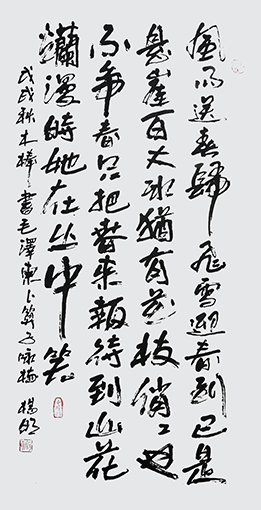 風雨送春歸飛雪迎春到已是
懸崖百丈冰猶有花枝俏〻也
不爭春只把春來報待到山花
爛漫時她在丛中笑
戊戌秋木書毛澤東卜算子咏梅 楊